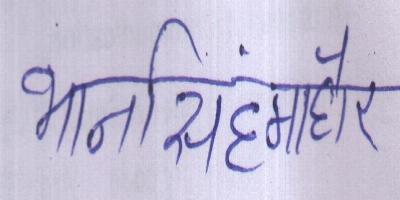 भान सिंह माहौर